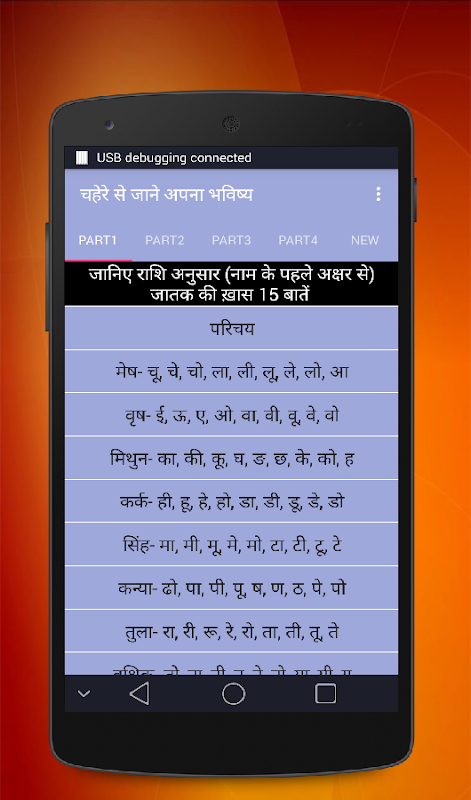 USB debugging connected
चहेरे से जाने अपना भविष्य
PART1 PART2 PART3 PART4 NEW
जानिए राशि अनुसार (नाम के पहले अक्षर से)
जातक की ख़ास 15 बातें
परिचय
मेष- चू, चे, चो, ला, ली, लू, ले, लो, आ
वृष- ई, ऊ, ए, ओ, वा, वी, वू, वे, वो
मिथुन- का, की, कू, घ, ङ, छ, के, को, ह
कर्क- ही, हू, हे, हो, डा, डी, डू, डे, डो
सिंह- मा, मी, मू, मे, मो, टा, टी, टू, टे
कन्या- ढो, पा, पी, पू, ष, ण, ठ, पे, पो
तुला- रा, री, रू, रे, रो, ता, ती, तू, ते